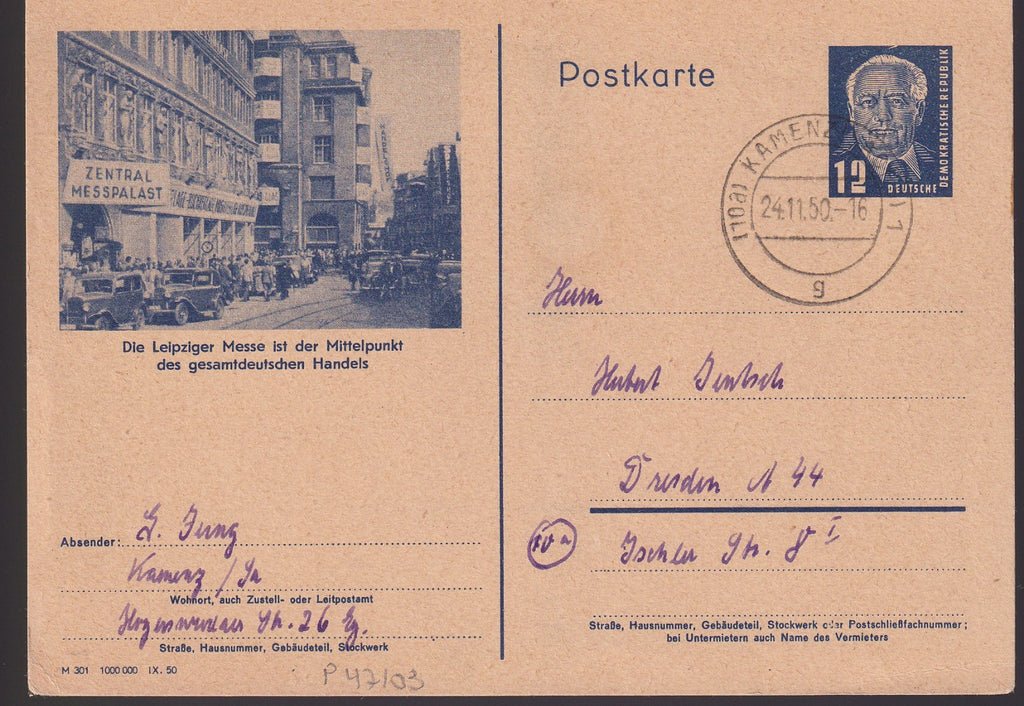 ZENTRAL
MESSPALAST
Die Leipziger Messe ist der Mittelpunkt
des gesamtdeutschen Handels
Absender: G. Jung
Kamenz / Sa
Wohnort, auch Zustell- oder Leitpostamt
Str. 26 Eg.
Straße, Hausnummer, Gebäudeteil, Stockwerk
M 301 1000000 IX. 50
P 47/03
Postkarte
12
DEUTSCHE
DEMOKRATISCHE REPUBLIK
KAMENZ
24.11.50.-16
g
Herrn
Hubert Jentsch
Dresden A 44
10a
Ischler Str. 8 I
Straße, Hausnummer, Gebäudeteil, Stockwerk oder Postschließfachnummer;
bei Untermietern auch Name des Vermieters